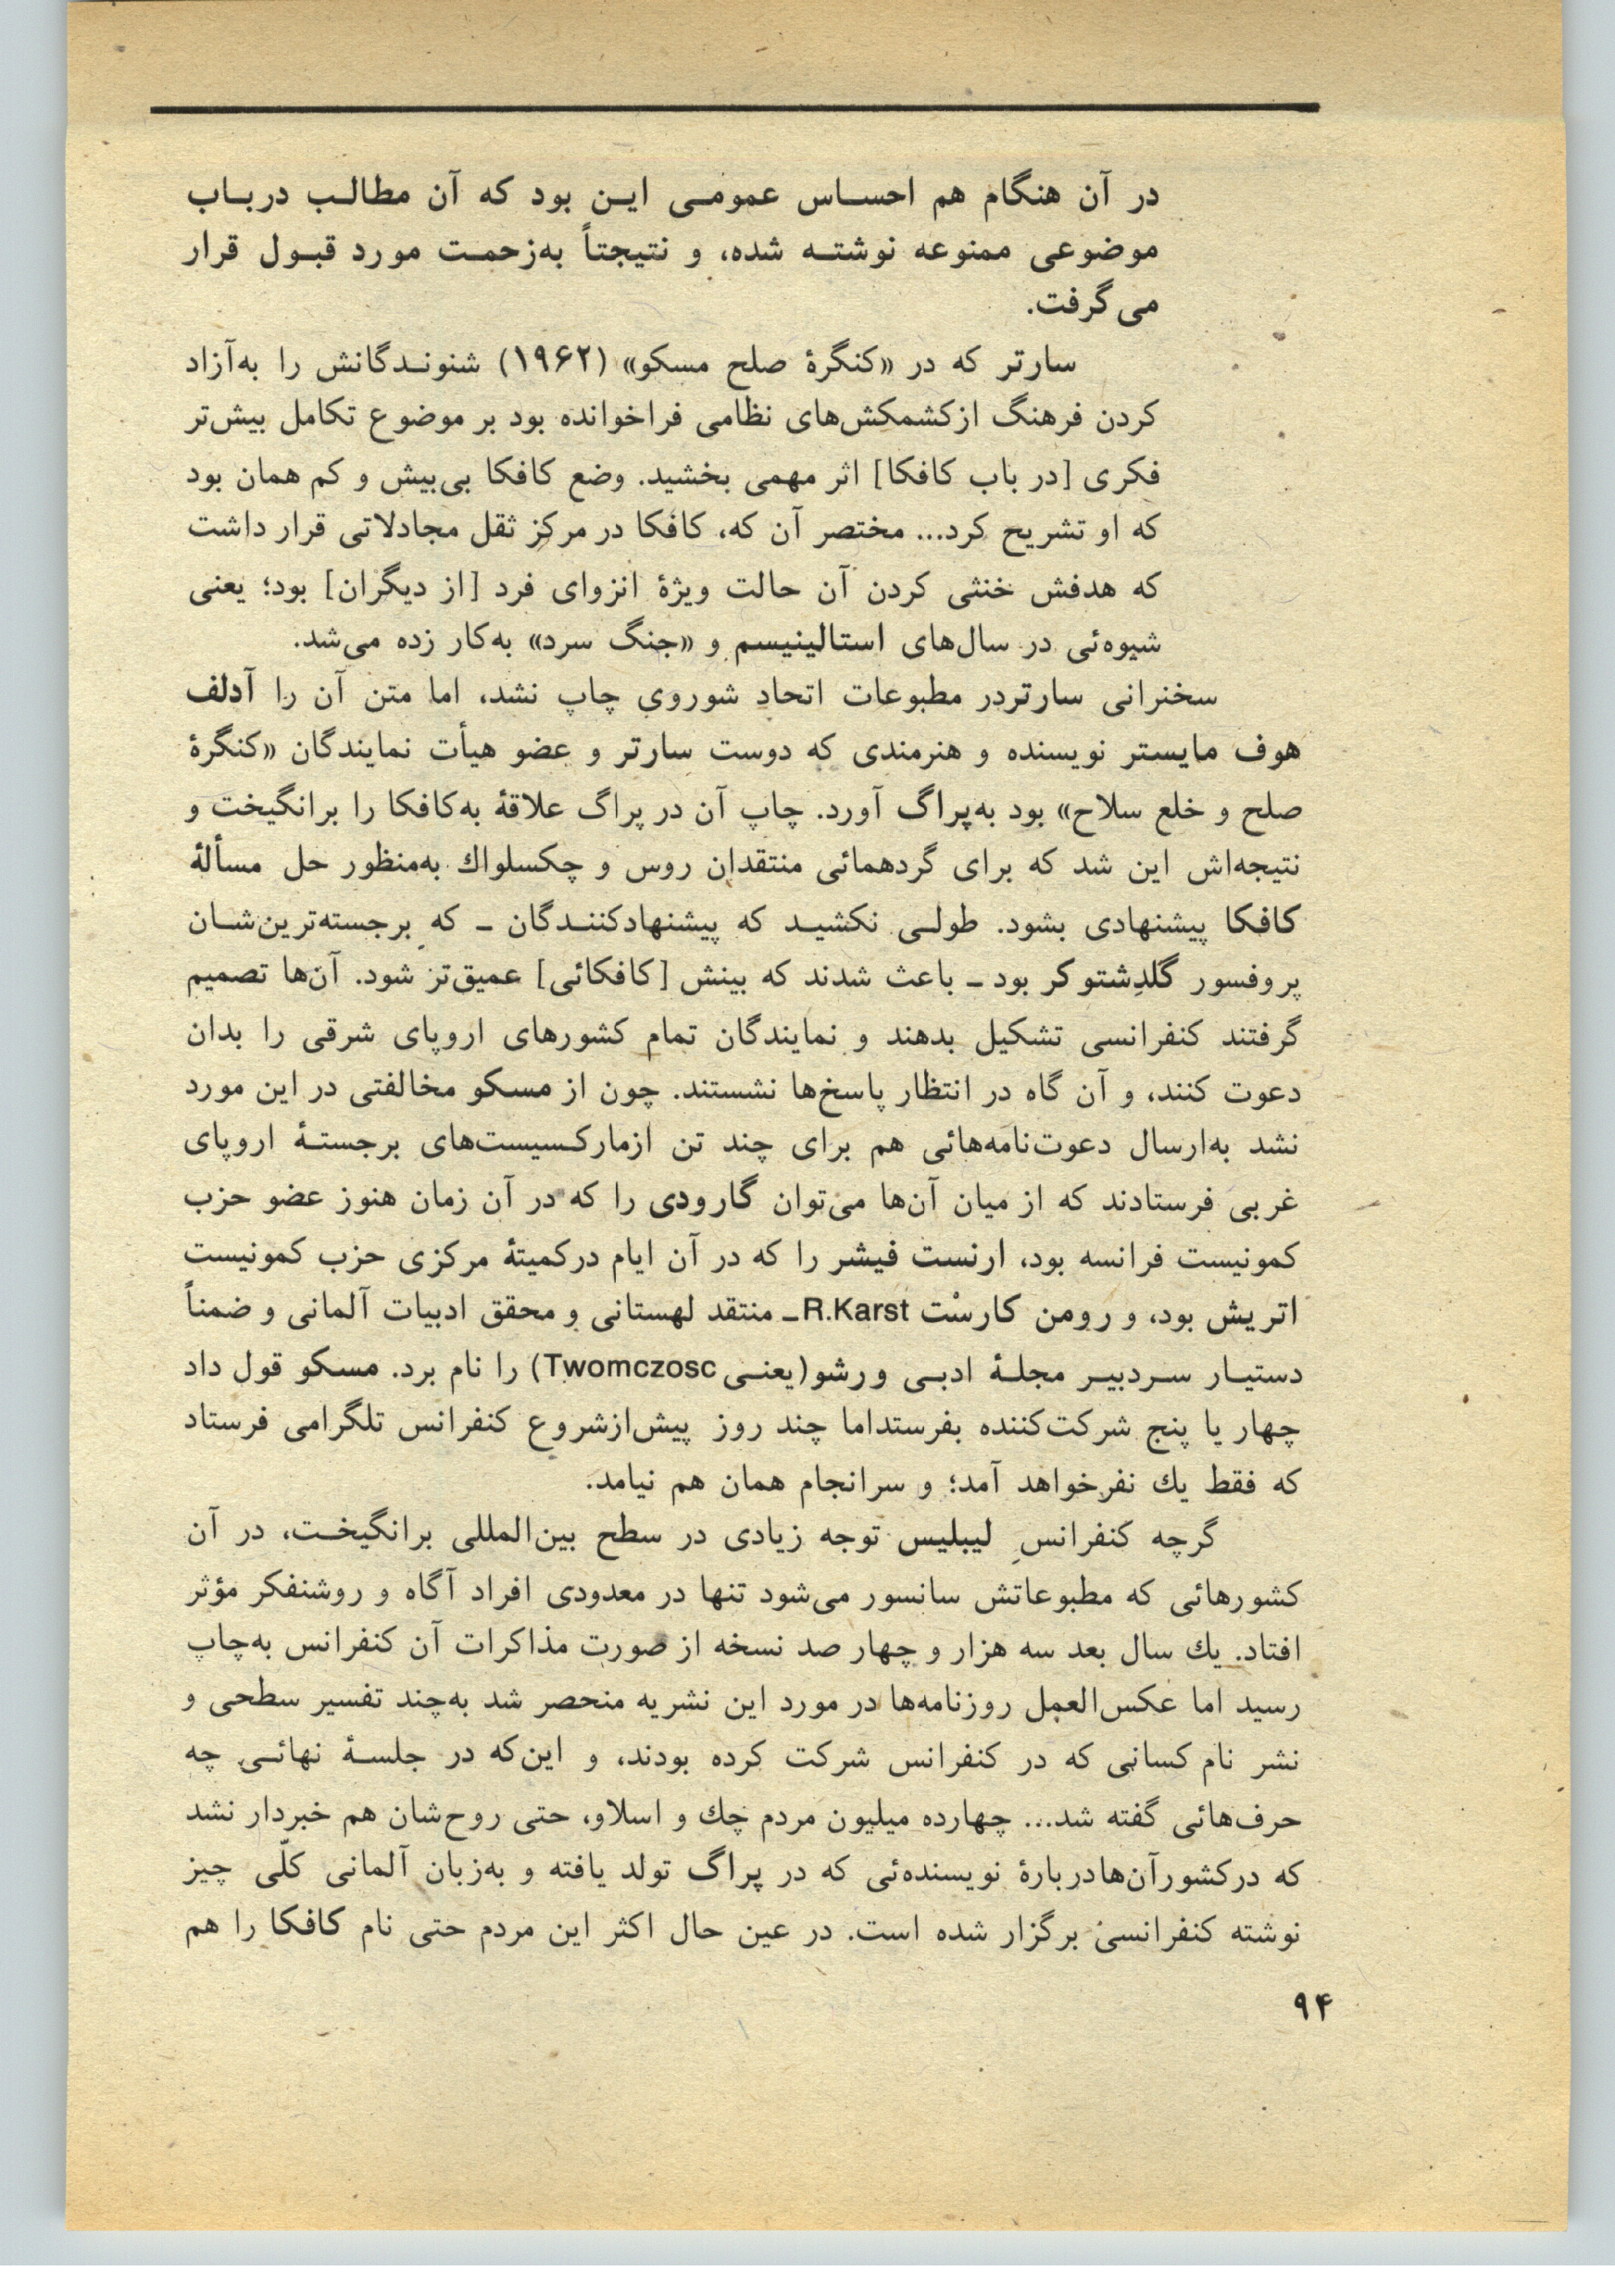 در آن هنگام هم احساس عمومی این بود که آن مطالب درباب
موضوعی ممنوعه نوشته شده، و نتیجتاً به‌زحمت مورد قبول قرار
می‌گرفت.
سارتر که در «کنگرهٔ صلح مسکو» (۱۹۶۲) شنوندگانش را به‌آزاد
کردن فرهنگ ازکشمکش‌های نظامی فراخوانده بود بر موضوع تکامل بیش‌تر
فکری [در باب کافکا] اثر مهمی بخشید. وضع کافکا بی‌بیش و کم همان بود
که او تشریح کرد... مختصر آن که، کافکا در مرکز ثقل مجادلاتی قرار داشت
که هدفش خنثی کردن آن حالت ویژهٔ انزوای فرد [از دیگران] بود؛ یعنی
شیوه‌ئی در سال‌های استالینیسم و «جنگ سرد» به‌کار زده می‌شد.
سخنرانی سارتردر مطبوعات اتحاد شوروی چاپ نشد، اما متن آن را آدلف
هوف مایستر نویسنده و هنرمندی که دوست سارتر و عضو هیأت نمایندگان «کنگرهٔ
صلح و خلع سلاح» بود به‌پراگ آورد. چاپ آن در پراگ علاقهٔ به‌کافکا را برانگیخت و
نتیجه‌اش این شد که برای گردهمائی منتقدان روس و چکسلواك به‌منظور حل مسألهٔ
کافکا پیشنهادی بشود. طولی نکشید که پیشنهادکنندگان ـ که برجسته‌ترین‌شان
پروفسور گلدِشتوکر بود ـ باعث شدند که بینش [کافکائی] عمیق‌تر شود. آن‌ها تصمیم
گرفتند کنفرانسی تشکیل بدهند و نمایندگان تمام کشورهای اروپای شرقی را بدان
دعوت کنند، و آن گاه در انتظار پاسخ‌ها نشستند. چون از مسکو مخالفتی در این مورد
نشد به‌ارسال دعوت‌نامه‌هائی هم برای چند تن ازمارکسیست‌های برجستهٔ اروپای
غربی فرستادند که از میان آن‌ها می‌توان گارودی را که در آن زمان هنوز عضو حزب
کمونیست فرانسه بود، ارنست فیشر را که در آن ایام درکمیتهٔ مرکزی حزب کمونیست
اتریش بود، و رومن کارسْت R.Karst ـ منتقد لهستانی و محقق ادبیات آلمانی و ضمناً
دستیار سردبیر مجلهٔ ادبی ورشو(یعنی Twomczosc) را نام برد. مسکو قول داد
چهار یا پنج شرکت‌کننده بفرستداما چند روز پیش‌ازشروع کنفرانس تلگرامی فرستاد
که فقط یك نفرخواهد آمد؛ و سرانجام همان هم نیامد.
گرچه کنفرانسِ لیبلیس توجه زیادی در سطح بین‌المللی برانگیخت، در آن
کشورهائی که مطبوعاتش سانسور می‌شود تنها در معدودی افراد آگاه و روشنفکر مؤثر
افتاد. یك سال بعد سه هزار و چهار صد نسخه از صورت مذاکرات آن کنفرانس به‌چاپ
رسید اما عکس‌العمل روزنامه‌ها در مورد این نشریه منحصر شد به‌چند تفسیر سطحی و
نشر نام کسانی که در کنفرانس شرکت کرده بودند، و این‌که در جلسهٔ نهائی چه
حرف‌هائی گفته شد... چهارده میلیون مردم چك و اسلاو، حتی روح‌شان هم خبردار نشد
که درکشورآن‌هادربارهٔ نویسنده‌ئی که در پراگ تولد یافته و به‌زبان آلمانی کلّی چیز
نوشته کنفرانسی برگزار شده است. در عین حال اکثر این مردم حتی نام کافکا را هم
۹۴